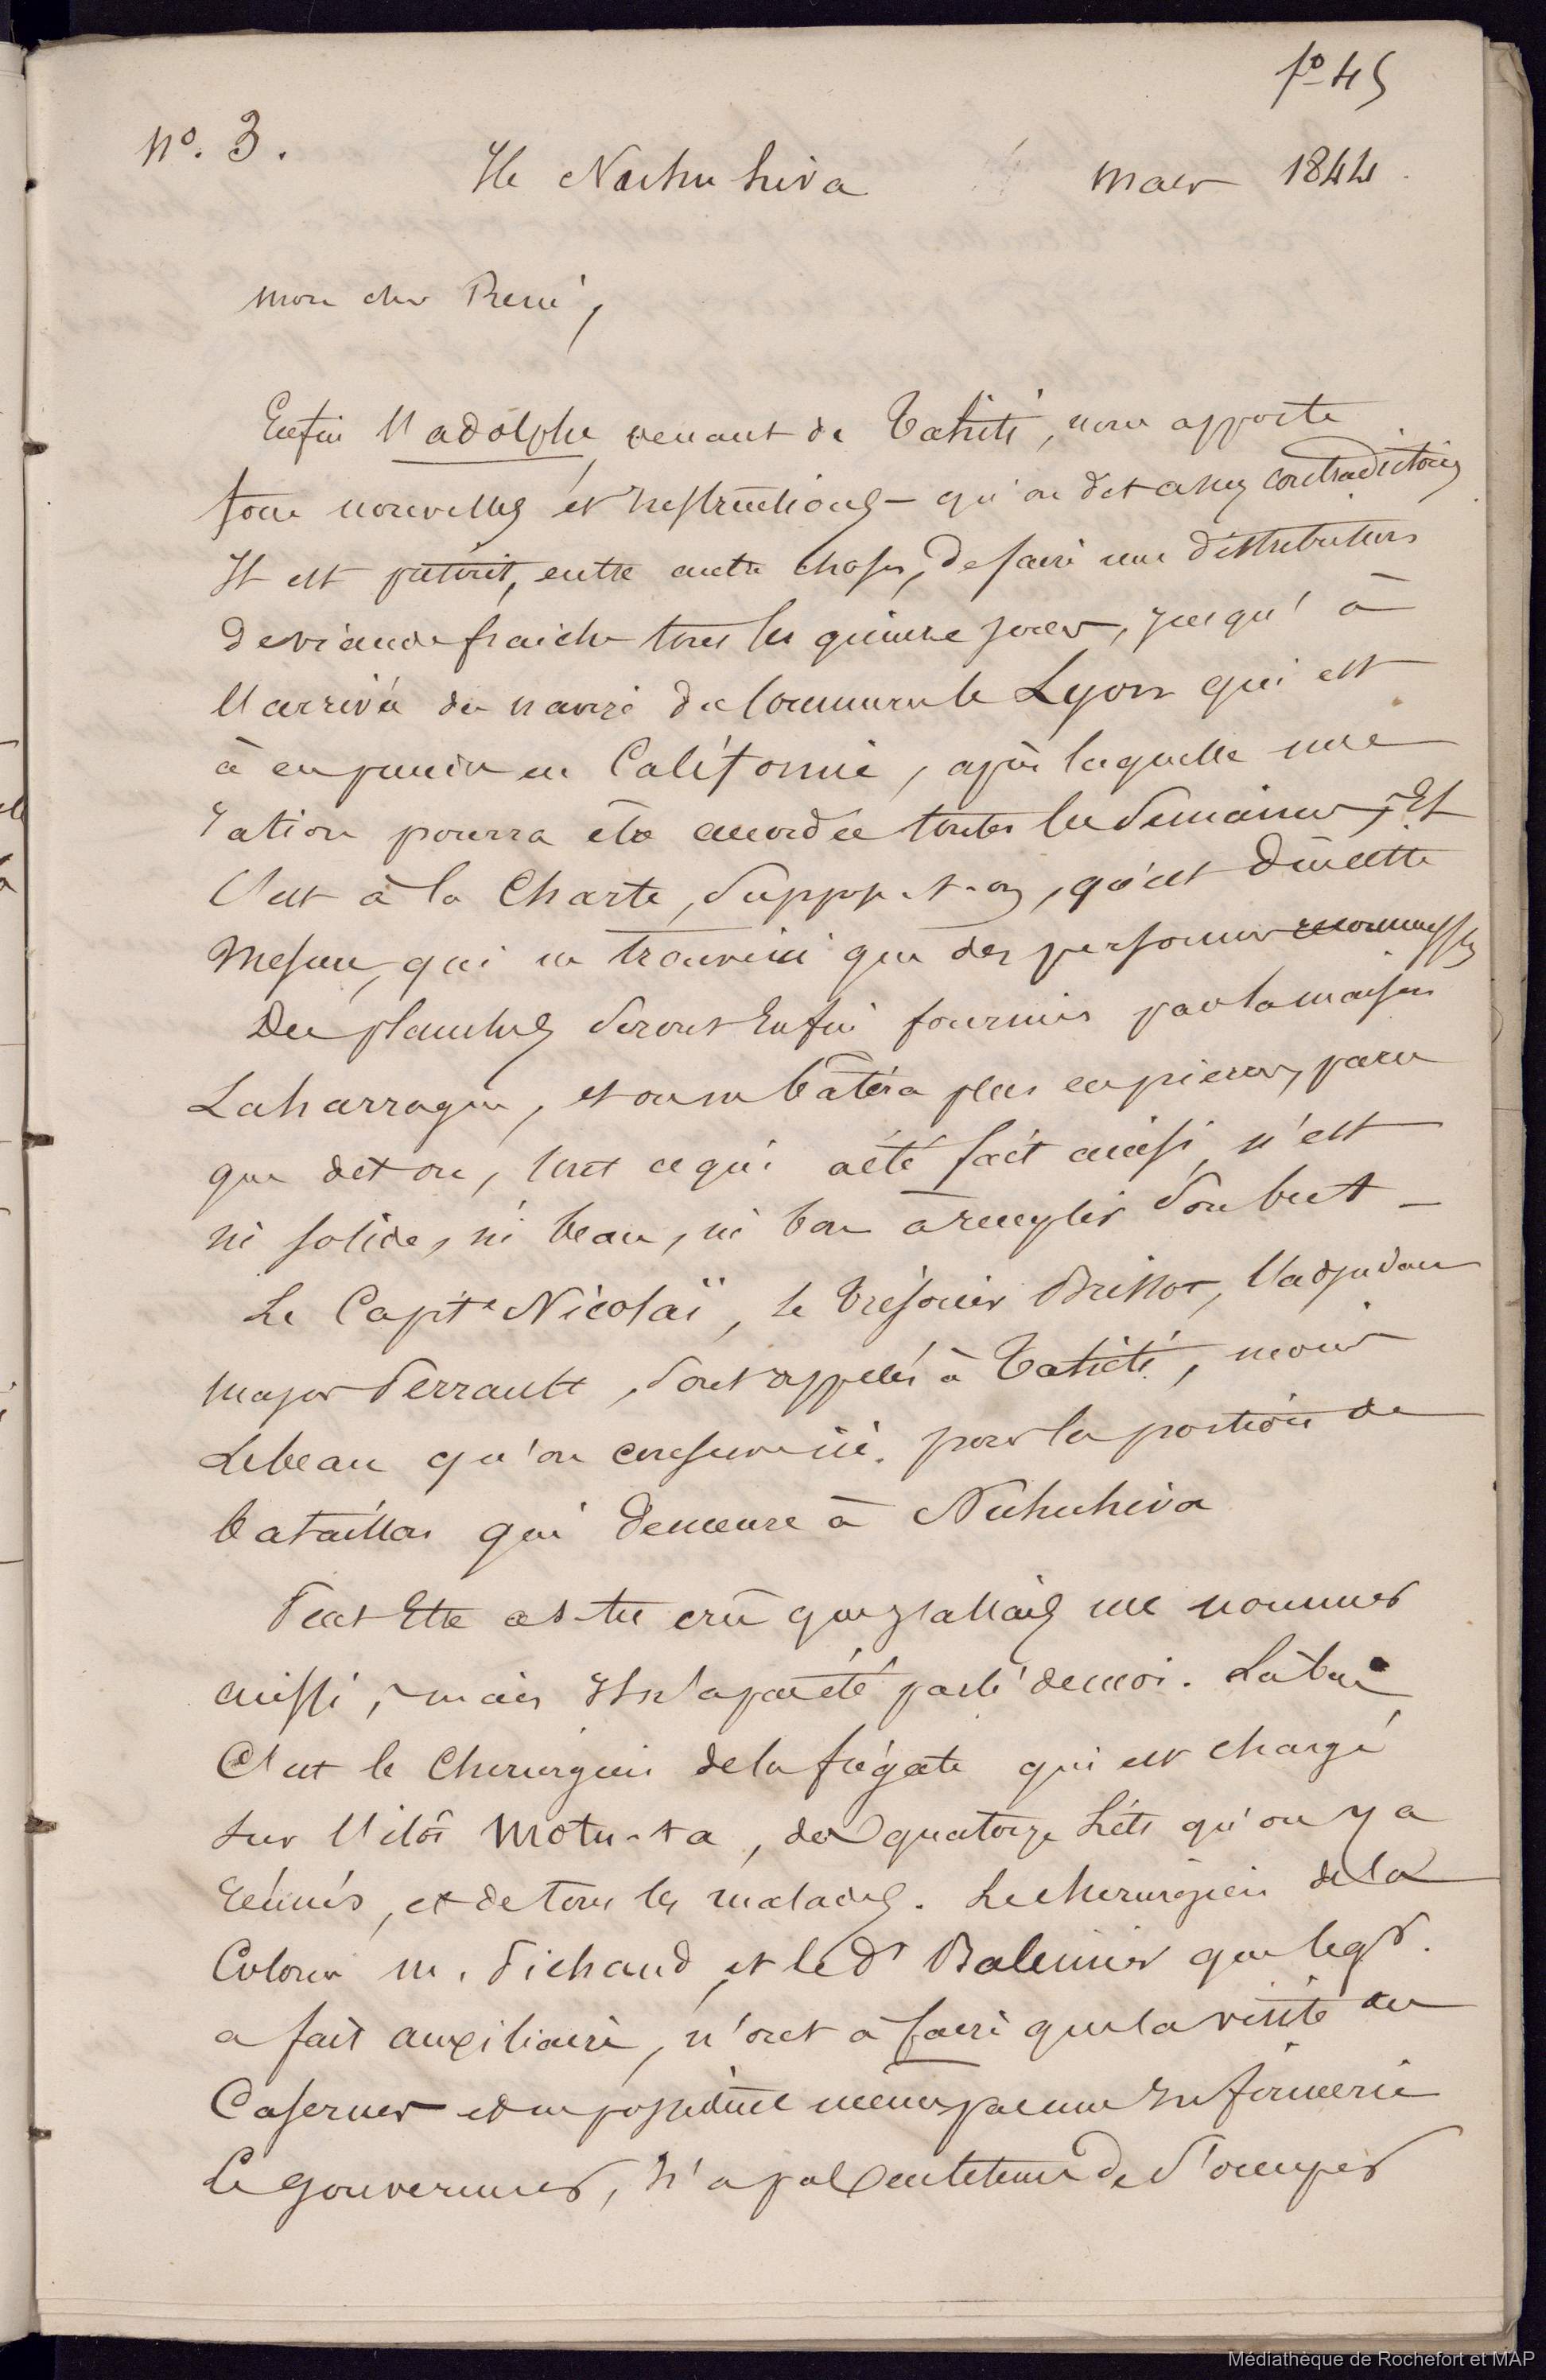 fº 45
nº. 3.
Ile Nuhu hiva mars 1844.
mon cher René,
Enfin l'adolphe venant de Tahiti, nous apporte
tous nouvelles et Instructions - qu'on dit assez contradictoires
Il est prescrit, entre autre choses, de faire une distributions
de viande fraiche tous les quinze jours, jusqu'à
l'arrivée du navire de Commerce le Lyon qui est
à en prendre en Californie, après laquelle une
ration pourra être accordée toutes les semaines, Et
C'est à la Charte, suppose-t-on, qu'est due cette
Mesure, qui ne trouve ici que des personnes reconnaissantes
Des planches seront Enfin fournies par la maison
Laharrague, et on ne bâtira plus en pierres, parce
que dit on, tout ce qui a été fait ainsi n'est
ni solide, ni beau, ni bon à remplir son but -
Le Capte Nicolaï, le trésorier Brissot, l'adjudant
major Perrault, sont appelés à Tahiti, moins
Lebeau qu'on conserve ici. pour la portion de
bataillon qui demeure à Nuhuhiva
Peut Etre as-tu crû que j'allais me nommer
aussi, mais Il n'a pas été parlé de moi. Là bas
C'est le Chirurgien de la frégate qui est chargé
sur l'ilôt Motu-ta, des quatorze lits qu'on y a
réunis, et de tous les malades. Le chirurgien de la
Colonie m. Pichaud, et le dr Baleinier que le gr.
a fait auxiliaire, n'ont à faire que la visite des
Casernes et ne possèdent même pas une Infirmerie
Le gouverneur, n'a pas de s'occuper